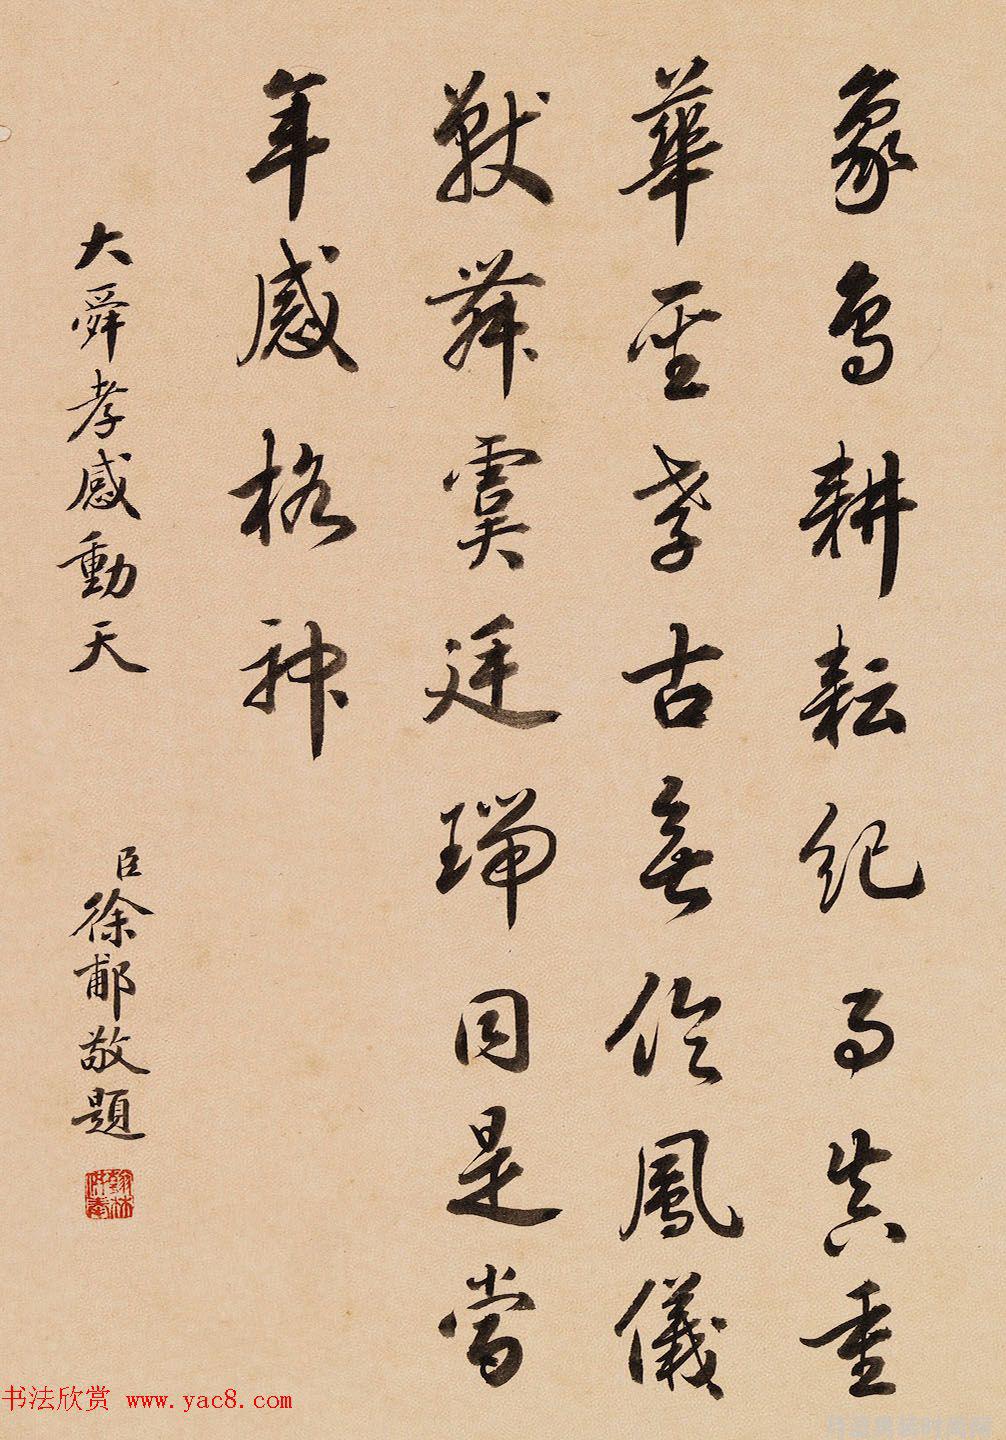 象鳥耕耘紀事真重
華聖孝古無倫鳳儀
獸舞虞廷瑞同是當
年感格神
大舜孝感動天
臣徐郙敬題
翰林供奉
书法欣赏 www.yac8.com